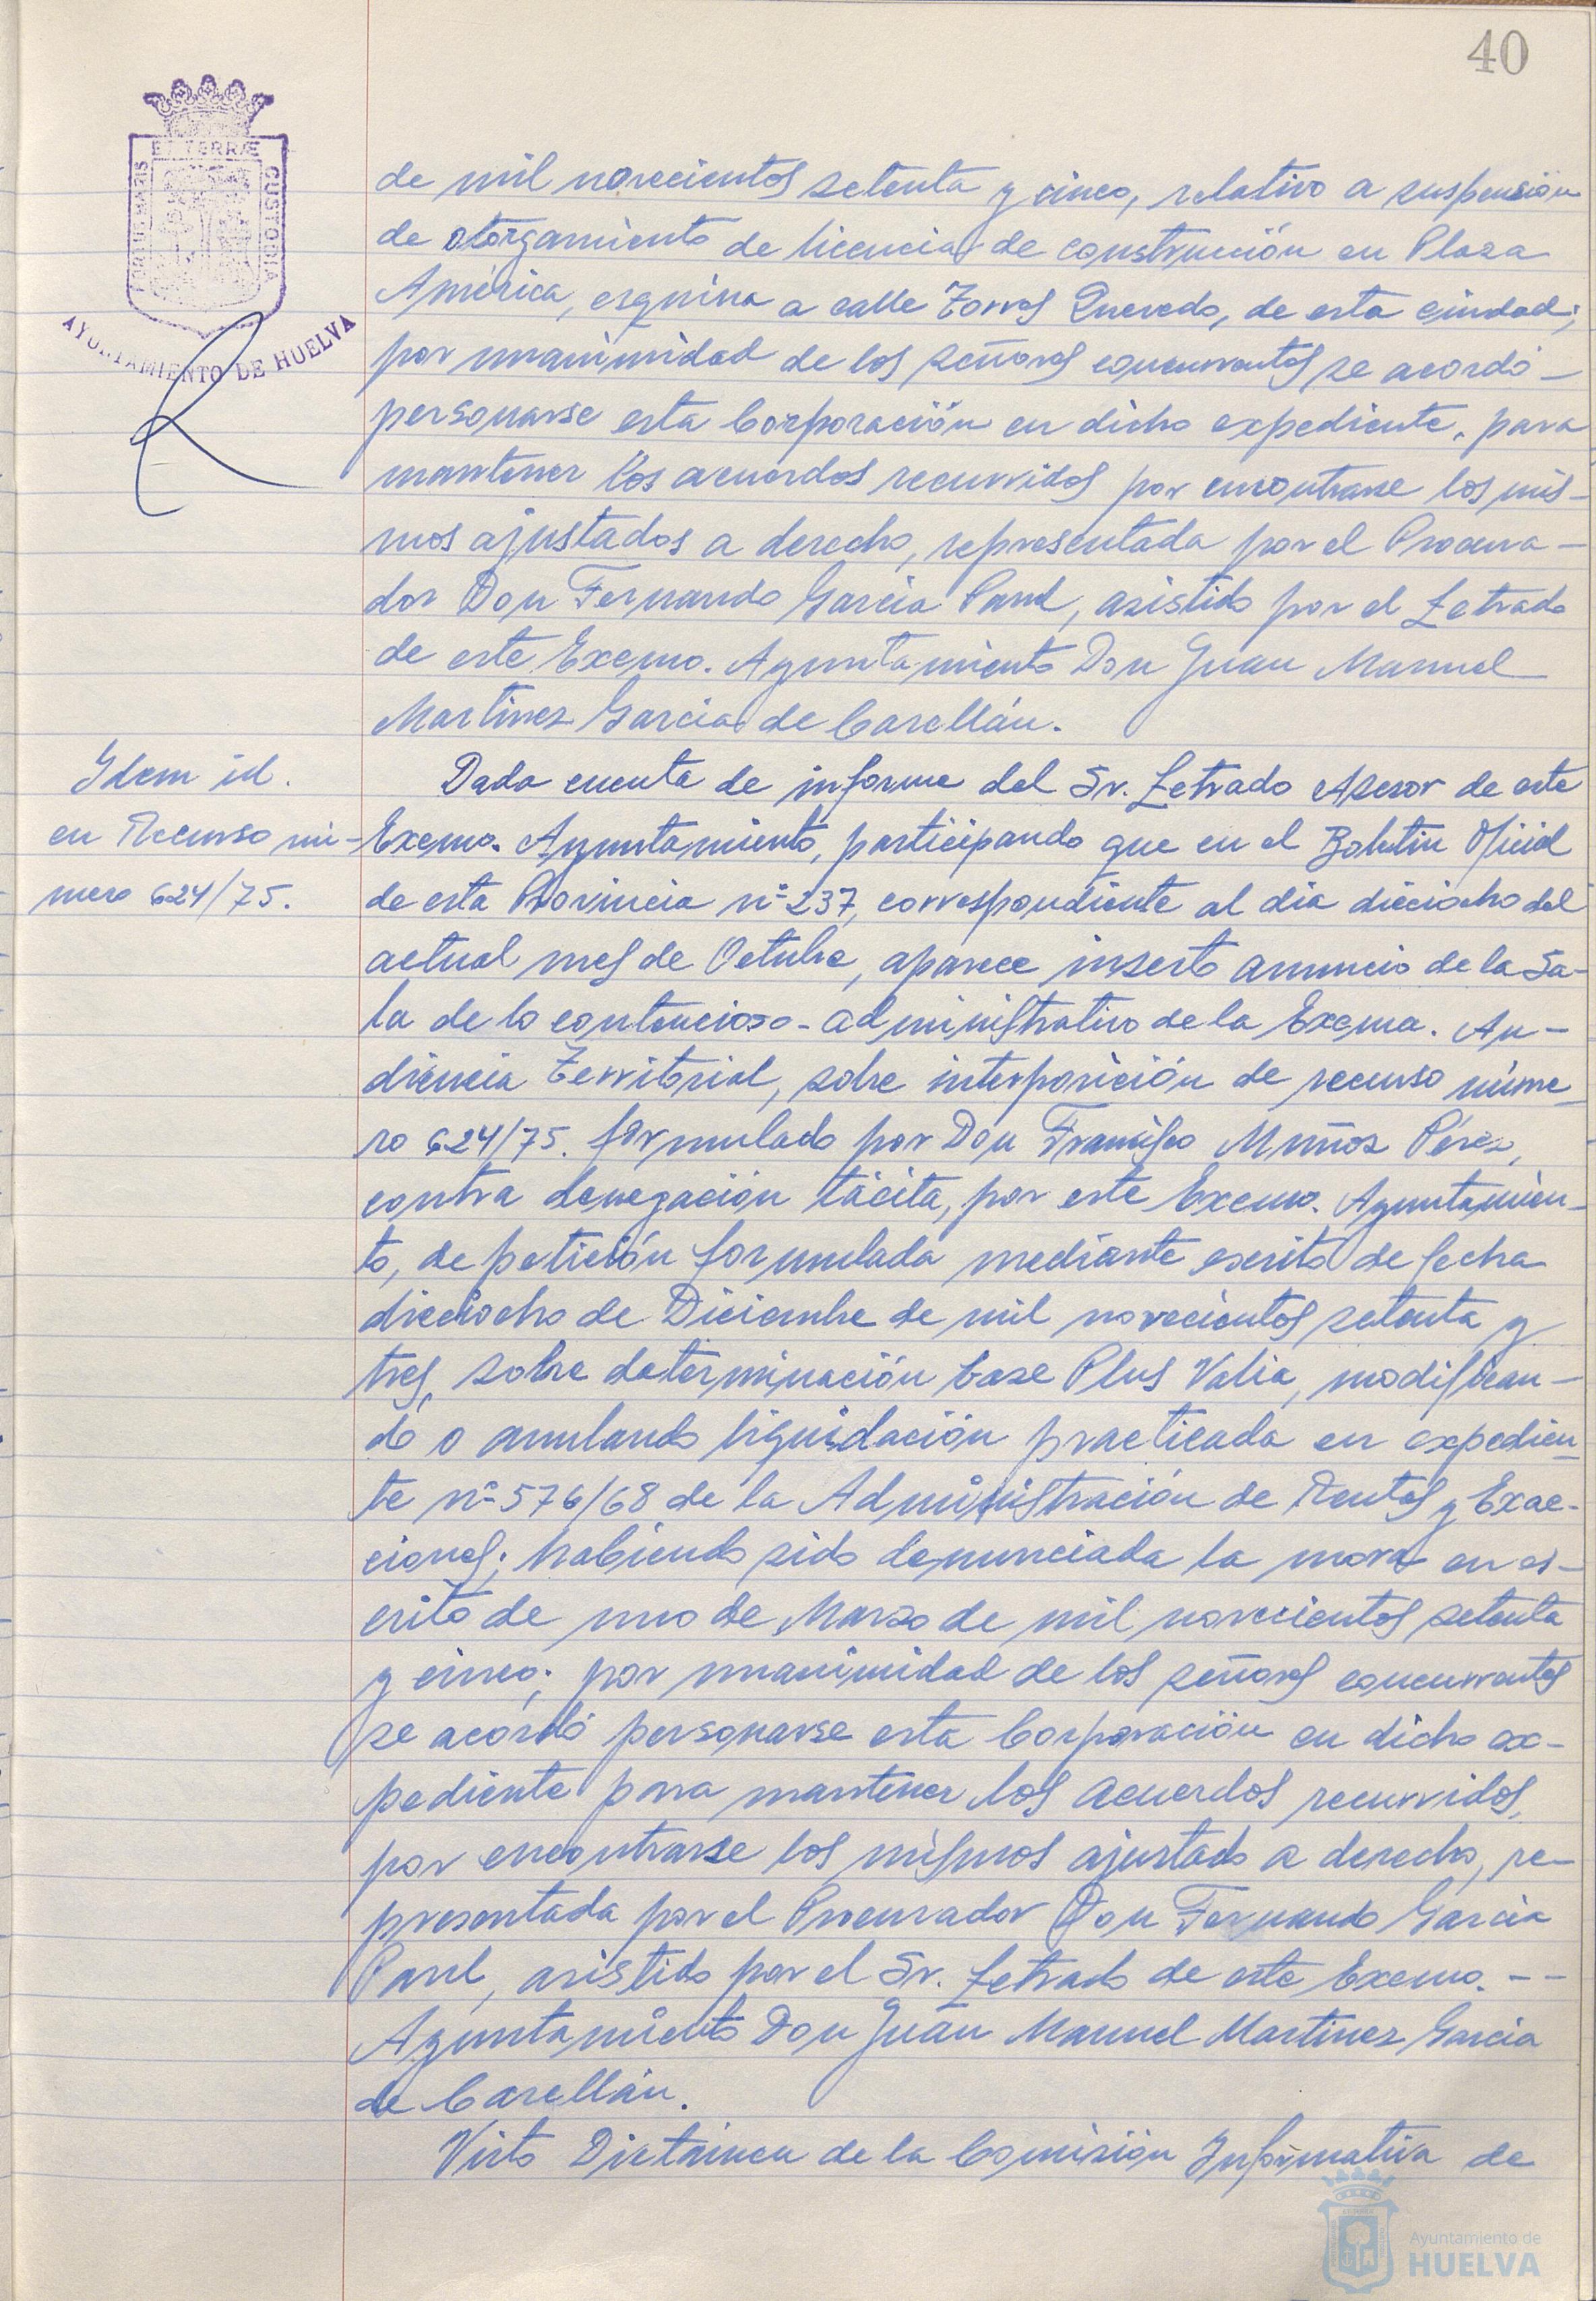 40
ET TERRÆ
PORTUS MARIS
CUSTODIA
AYUNTAMIENTO DE HUELVA
de mil novecientos setenta y cinco, relativo a suspensión
de otorgamiento de licencia de construcción en Plaza
América, esquina a calle Torres Quevedo, de esta ciudad;
por unanimidad de los señores concurrentes se acordó -
personarse esta Corporación en dicho expediente, para
mantener los acuerdos recurridos por encontrarse los mis-
mos ajustados a derecho, representada por el Procura-
dor Don Fernando García Parul, asistido por el Letrado
de este Excmo. Ayuntamiento Don Juan Manuel
Martinez Garcia de Carellán.
Idem id.
en Recurso nú-
mero 624/75.
Dada cuenta de informe del Sr. Letrado Asesor de este
Excmo. Ayuntamiento, participando que en el Boletin Oficial
de esta Provincia nº 237, correspondiente al dia dieciocho del
actual mes de Octubre, aparece inserto anuncio de la Sa-
la de lo contencioso-administrativo de la Excma. Au-
diencia Territorial, sobre interposición de recurso núme-
ro 624/75. formulado por Don Francisco Muñoz Pérez,
contra denegación tácita, por este Excmo. Ayuntamien-
to, de petición formulada mediante escrito de fecha
dieciocho de Diciembre de mil novecientos setenta y
tres, sobre determinación base Plus Valia, modifican-
do o anulando liquidación practicada en expedien-
te nº 576/68 de la Administración de Rentas y Exac-
ciones; habiendo sido denunciada la mora en es-
crito de uno de Marzo de mil novecientos setenta
y cinco; por unanimidad de los señores concurrentes
se acordó personarse esta Corporación en dicho ex-
pediente para mantener los acuerdos recurridos,
por encontrarse los mismos ajustado a derecho, re-
presentada por el Procurador Don Fernando García
Parul, asistido por el Sr. Letrado de este Excmo. - -
Ayuntamiento Don Juan Manuel Martinez Garcia
de Carellán.
Visto Dictamen de la Comisión Informativa de
Ayuntamiento de
HUELVA